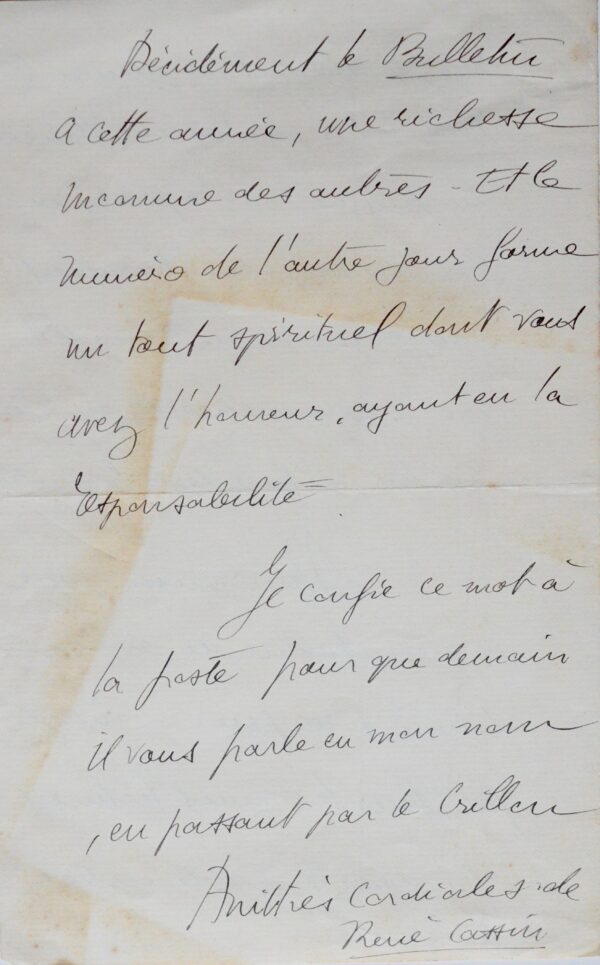 Décidément le Bulletin
a cette année, une richesse
inconnue des autres - Et le
numéro de l'autre jour forme
un tout spirituel dont vous
avez l'honneur, ayant eu la
responsabilité.
Je confie ce mot à
la poste pour que demain
il vous parle en mon nom
, en passant par le Crillon
Amitiés Cordiales de
René Cassin